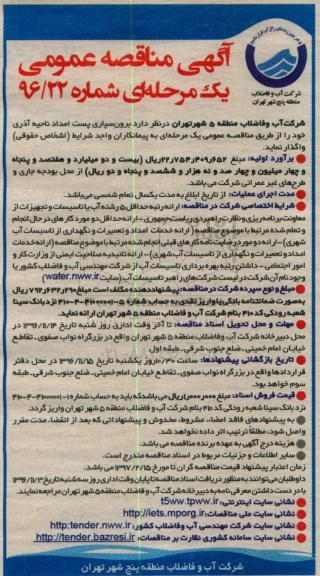 شرکت آب و فاضلاب
منطقه پنج شهر تهران
آگهی مناقصه عمومی
یک مرحله‌ای شماره ۹۶/۲۲
شرکت آب و فاضلاب منطقه ۵ شهر تهران در نظر دارد برون‌سپاری پست امداد ناحیه آذری
خود را از طریق مناقصه عمومی یک مرحله‌ای به پیمانکاران واجد شرایط (اشخاص حقوقی)
واگذار نماید.
برآورد اولیه: مبلغ ۲۲,۷۵۴,۴۰۹,۶۵۲ ریال (بیست و دو میلیارد و هفتصد و پنجاه
و چهار میلیون و چهار صد و نه هزار و ششصد و پنجاه و دو ریال) از محل بودجه جاری و
طرح‌های غیر عمرانی شرکت می باشد.
مدت اجرای عملیات: از تاریخ ابلاغ به مدت یکسال تمام شمسی می‌باشد.
شرایط اختصاصی شرکت در مناقصه: ارائه رتبه حداقل ۵ رشته آب یا تاسیسات و تجهیزات از
معاونت برنامه ریزی و نظارت راهبردی ریاست جمهوری – ارائه حداقل دو مورد کارهای در حال انجام
و تمام شده مرتبط با موضوع مناقصه (ارائه خدمات امداد و تعمیرات و نگهداری از تاسیسات آب
شهری) – ارائه دو مورد رضایت نامه کارهای قبلی انجام شده مرتبط با موضوع مناقصه (ارائه خدمات
امداد و تعمیرات و نگهداری از تاسیسات آب شهری) – ارائه تائیدیه صلاحیت ایمنی از وزارت کار و
امور اجتماعی – داشتن رتبه بهره برداری تاسیسات آب از شرکت مهندسی آب و فاضلاب کشور یا
وجود نام آن شرکت در لیست شرکت‌های راهبر تاسیسات آب (سایت water.nww.ir)
مبلغ و نوع سپرده شرکت در مناقصه: پیشنهاد دهنده مکلف است مبلغ ۷۹۲,۶۳۲,۲۹۰ ریال
به صورت ضمانتنامه بانکی یا واریز نقدی به حساب شماره نزد بانک سینا
شعبه رودکی کد ۴۱۰ بنام شرکت آب و فاضلاب منطقه ۵ شهر تهران ارائه نماید.
مهلت و محل تحویل اسناد مناقصه: تا آخر وقت اداری روز شنبه تاریخ ۱۳۹۶/۱۱/۱۴ در
محل دبیرخانه شرکت آب و فاضلاب منطقه ۵ شهر تهران واقع در بزرگراه نواب صفوی، تقاطع
خیابان امام خمینی، ضلع جنوب شرقی، طبقه اول
تاریخ بازگشائی پیشنهادها: ساعت ۱۰/۳۰ روز یکشنبه تاریخ ۱۳۹۶/۱۱/۱۵ در محل دفتر
قراردادها واقع در بزرگراه نواب صفوی، تقاطع خیابان امام خمینی، ضلع جنوب شرقی، طبقه
سوم خواهد بود.
قیمت فروش اسناد: مبلغ ۱,۰۰۰,۰۰۰ ریال می باشد که باید به حساب شماره
نزد بانک سینا شعبه رودکی کد ۴۱۰ بنام شرکت آب و فاضلاب منطقه ۵ شهر تهران واریز گردد.
به پیشنهادهای فاقد امضا، مشروط، مخدوش و پیشنهاداتی که بعد از انقضاء مدت مقرر
واصل شود، مطلقا ترتیب اثر داده نخواهد شد.
هزینه درج آگهی به عهده برنده مناقصه می باشد.
سایر اطلاعات و جزئیات مربوط در اسناد مناقصه مندرج است.
زمان اعتبار پیشنهاد قیمت مناقصه گران تا مورخ ۱۳۹۷/۲/۱۵ می باشد.
داوطلبان می توانند به منظور دریافت اسناد مناقصه تا پایان وقت اداری روز سه شنبه تاریخ ۱۳۹۶/۱۱/۳
با در دست داشتن معرفی نامه به دبیرخانه شرکت آب و فاضلاب منطقه ۵ شهر تهران مراجعه نمایند.
نشانی سایت اینترنتی: t5ww.tpww.ir
نشانی سایت ملی مناقصات: http://iets.mporg.ir
نشانی سایت شرکت مهندسی آب و فاضلاب کشور: http:tender.nww.ir
نشانی سایت سامانه کشوری نظارت بر مناقصات: http://tender.bazresi.ir
شرکت آب و فاضلاب منطقه پنج شهر تهران